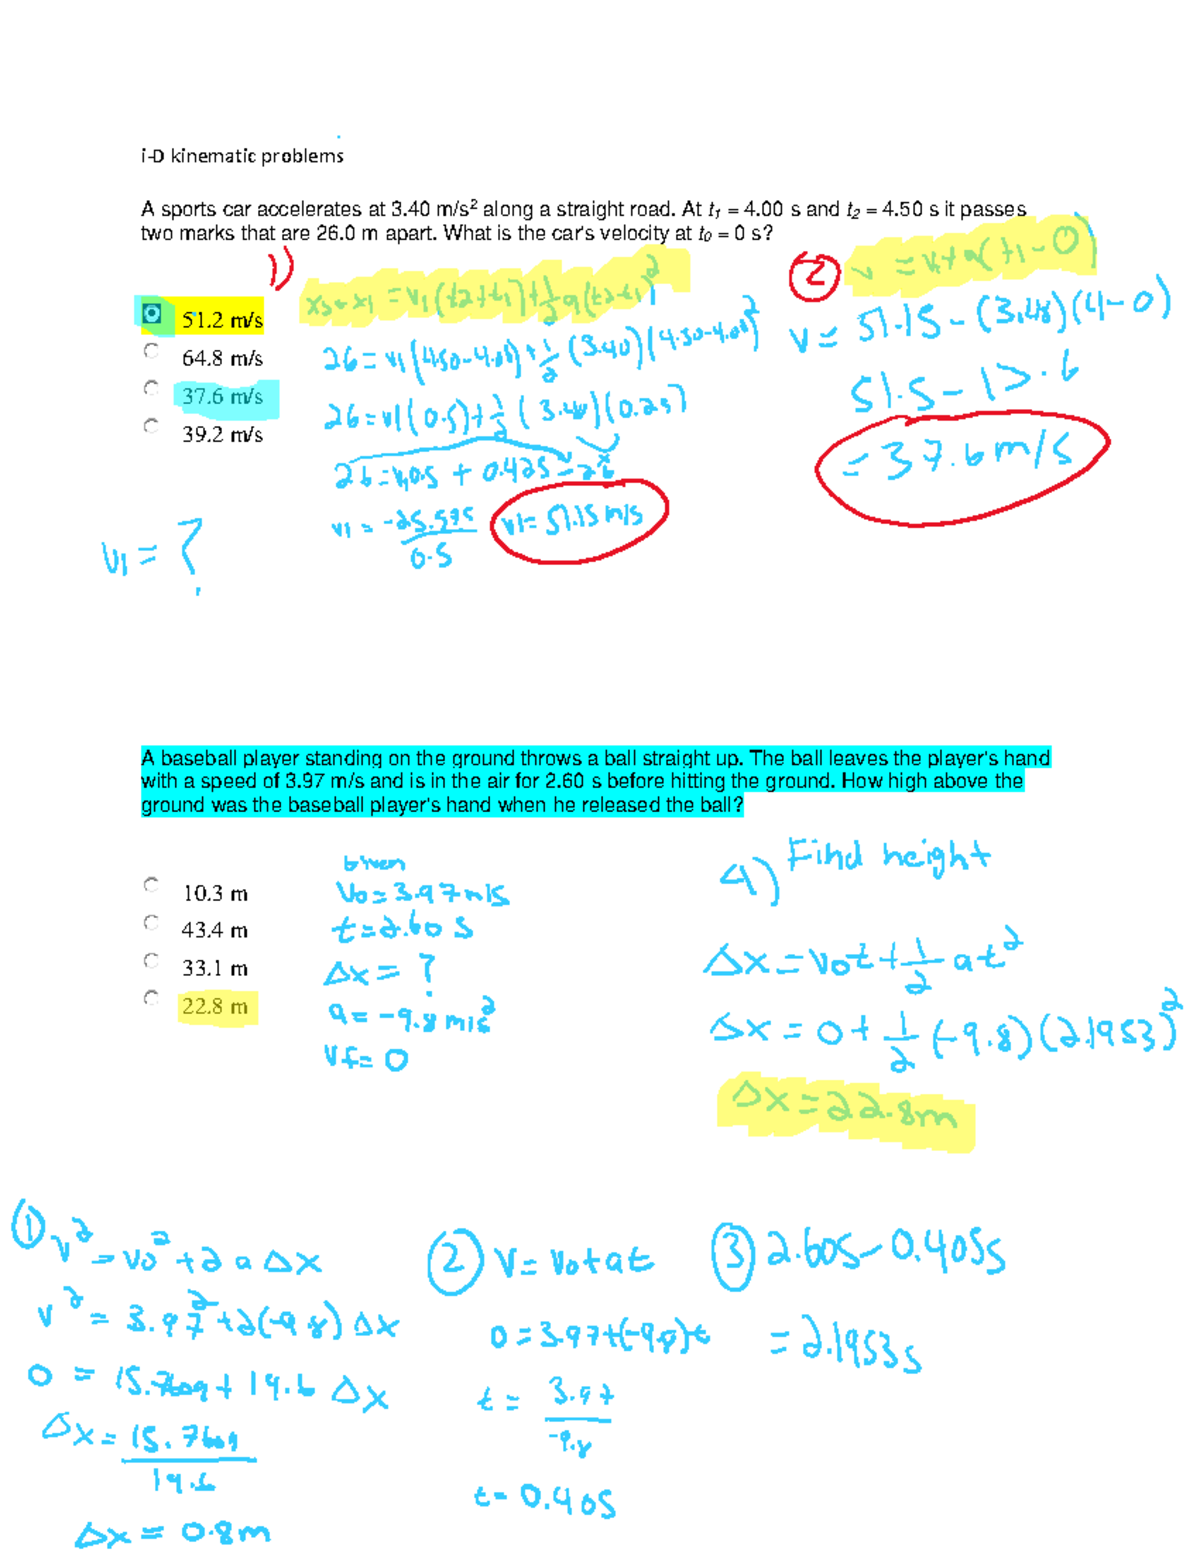 i-D kinematic problems
A sports car accelerates at 3.40 m/s² along a straight road. At t₁ = 4.00 s and t₂ = 4.50 s it passes
two marks that are 26.0 m apart. What is the car's velocity at t₀ = 0 s?
51.2 m/s
64.8 m/s
37.6 m/s
39.2 m/s
v1 = ?
1)
26 = v1(0.5) + 1/2 (3.40)(0.25)
v1 = -25.575
0.5
v1 = 51.15 m/s
2
51.5 - 13.6
= 37.6 m/s
A baseball player standing on the ground throws a ball straight up. The ball leaves the player's hand
with a speed of 3.97 m/s and is in the air for 2.60 s before hitting the ground. How high above the
ground was the baseball player's hand when he released the ball?
10.3 m
43.4 m
33.1 m
22.8 m
Given
Vo = 3.97 m/s
t = 2.60 s
Δx = ?
a = -9.8 m/s²
Vf = 0
4) Find height
Δx = Vot + 1/2 at²
Δx = 0 + 1/2 (-9.8)(2.1953)²
Δx = 22.8m
① v² = vo² + 2 a Δx
v² = 3.97² + 2(-9.8) Δx
0 = 15.7609 + 19.6 Δx
Δx = 15.7609
19.6
Δx = 0.8m
② V = Vo + at
0 = 3.97 + (-9.8)t
t = 3.97
-9.8
t = 0.405
③ 2.60s - 0.405s
= 2.1953s